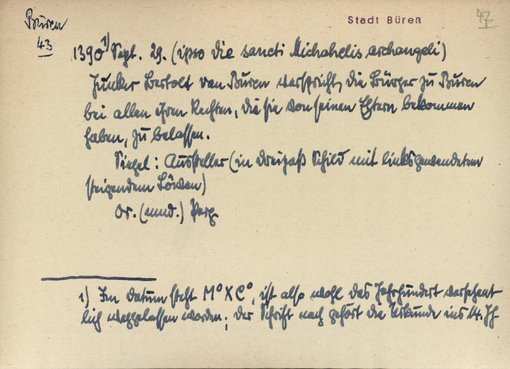 Büren
43
Stadt Büren
47
1390 1) Sept. 29. (ipso die sancti Michahelis archangeli)
Junker Bertolt van Buren verspricht, die Bürger zu Buren
bei allen ihren Rechten, die sie von seinen Eltern bekommen
haben, zu belassen.
Siegel: Aussteller (in Dreipaß Schild mit linksgewendetem
steigendem Löwen)
Or. (mnd.) Perg.
1) Im Datum steht M° XC°, ist also wohl das Jahrhundert versehent
lich weggelassen worden; der Schrift nach gehört die Urkunde ins 14. Jh